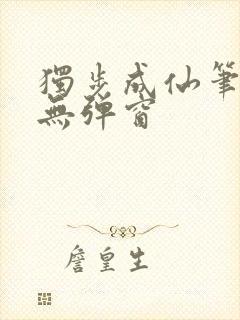 獨步成仙筆
無彈窗
詹皇生